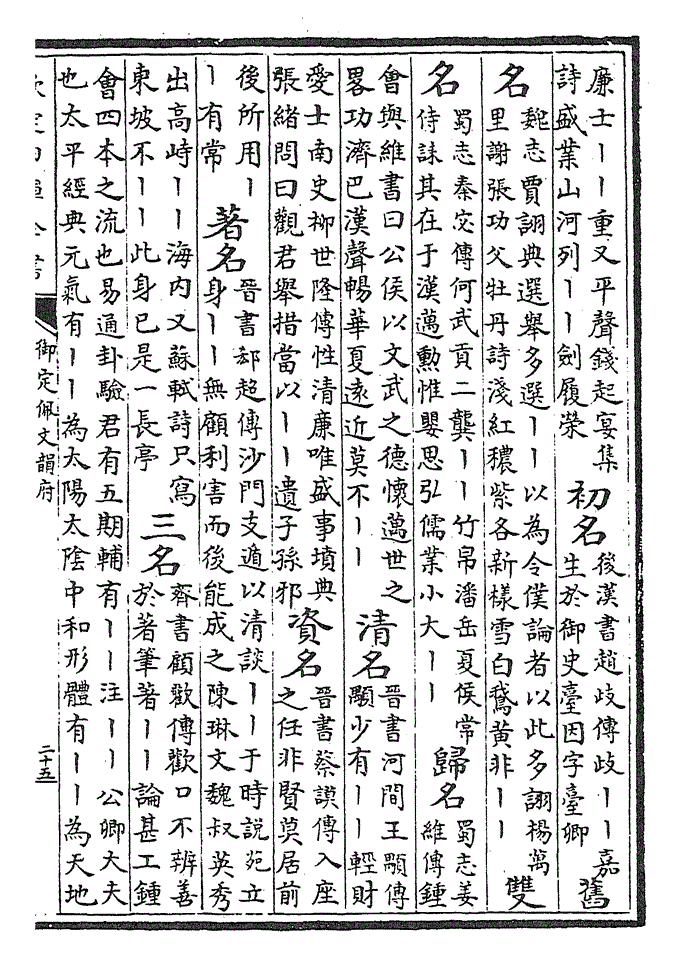 廉士丨丨重又平聲錢起宴集
詩盛業山河列丨丨劍履榮
初名
後漢書趙岐傳岐丨丨嘉
生於御史臺因字臺卿
舊
名
魏志賈詡典選舉多選丨丨以為令僕論者以此多詡楊萬
里謝張功父牡丹詩淺紅穠紫各新樣雪白鵞黃非丨丨
雙
名
蜀志秦宓傳何武貢二龔丨丨竹帛潘岳夏侯常
侍誄其在于漢邁勲惟嬰思弘儒業小大丨丨
歸名
蜀志姜
維傳鍾
會與維書曰公侯以文武之德懷邁世之
畧功濟巴漢聲暢華夏遠近莫不丨丨
清名
晉書河間王顒傳
顒少有丨丨輕財
愛士南史柳世隆傳性清廉唯盛事墳典
張緒問曰觀君舉措當以丨丨遺子孫邪
資名
晉書蔡謨傳入座
之任非賢莫居前
後所用丨
丨有常
著名
晉書郗超傳沙門支遁以清談丨丨于時説苑立
身丨丨無顧利害而後能成之陳琳文魏叔英秀
出高峙丨丨海内又蘇軾詩只寫
東坡不丨丨此身已是一長亭
三名
齊書顧歡傳歡口不辨善
於著筆著丨丨論甚工鍾
會四本之流也易通卦驗君有五期輔有丨丨注丨丨公卿大夫
也太平經典元氣有丨丨為太陽太陰中和形體有丨丨為天地
欽定四庫全書
御定佩文韻府
二十五